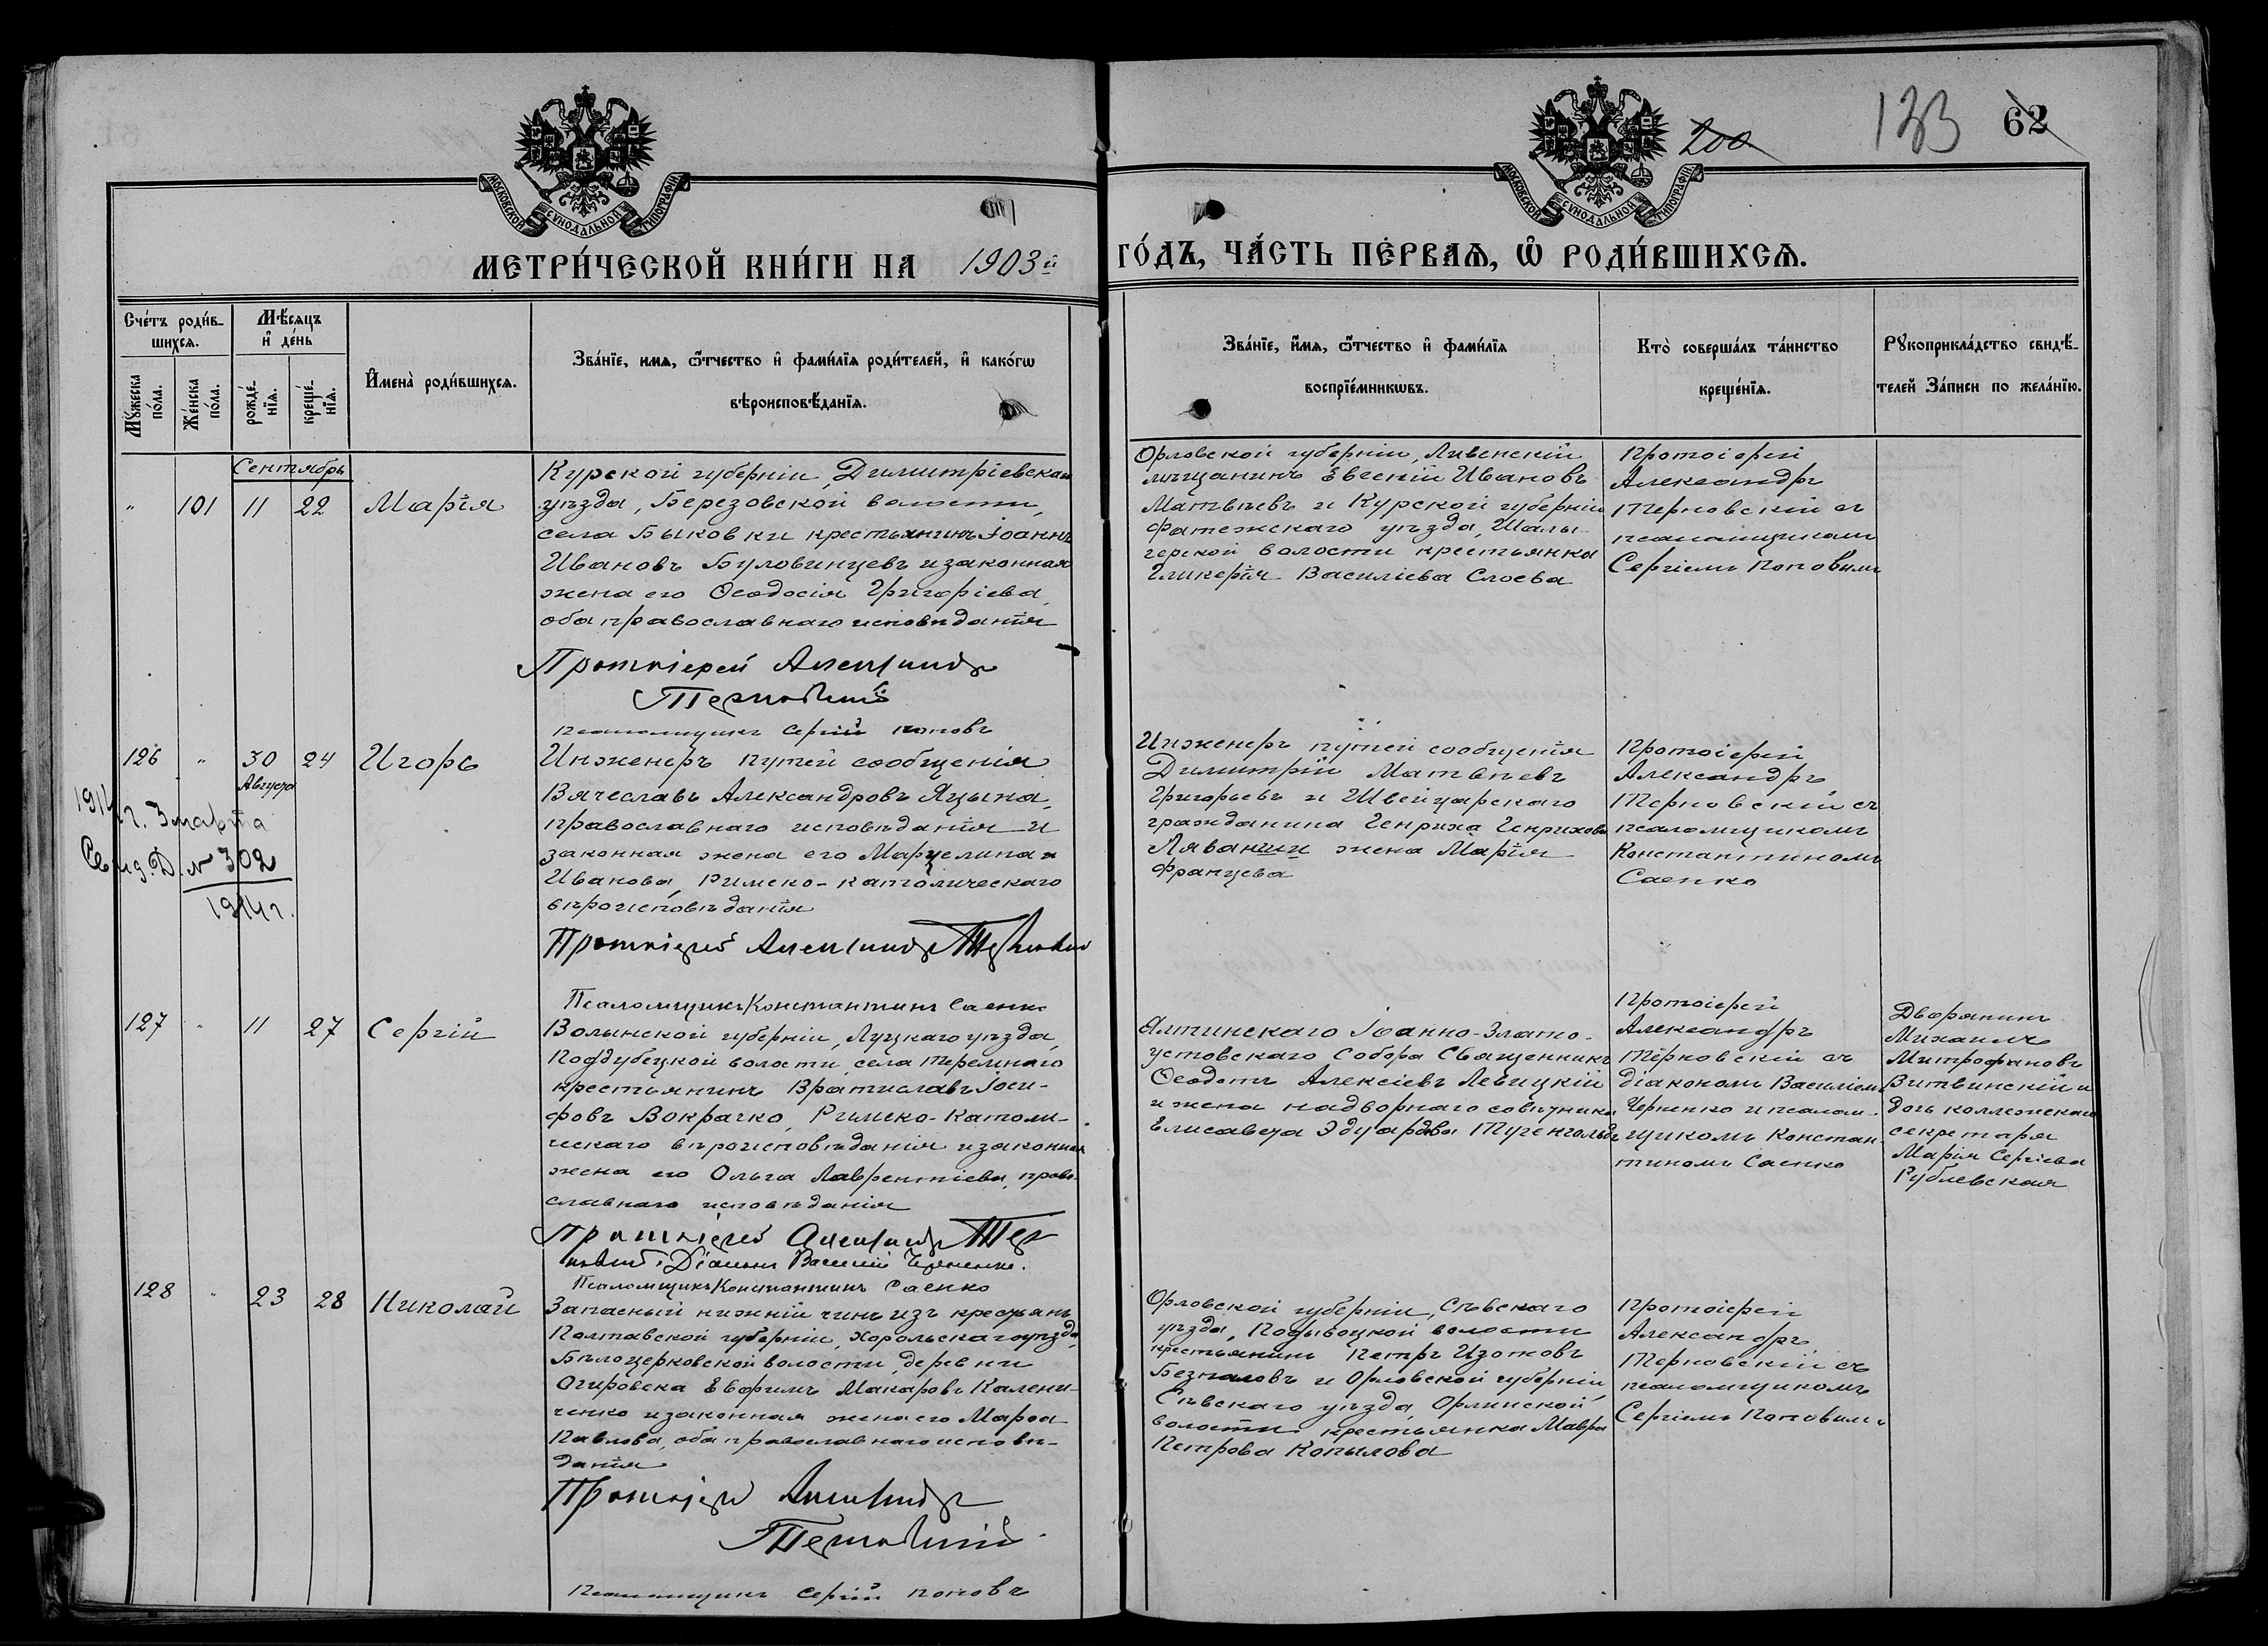 МОСКОВСКОЙ СУНОДАЛЬНОЙ ТИПОГРАФІИ
МОСКОВСКОЙ СУНОДАЛЬНОЙ ТИПОГРАФІИ
200
133
62
МЕТРИ́ЧЕСКОЙ КНИ́ГИ НА 1903й ГО́ДЪ, ЧА́СТЬ ПЕ́РВАѦ, Ѡ РОДИ́ВШИХСѦ.
Сче́тъ роди́в-
шихсѧ.
Мꙋ́жеска по́ла.
Же́нска по́ла.
Мѣ́сѧцъ и де́нь
рожде́-нїѧ.
креще́-нїѧ.
Имена̀ роди́вшихсѧ.
Зва́нїе, имѧ, ѻ҆́тчество и҆ фами́лїѧ роди́телей, и҆ како́гѡ
вѣроисповѣ́данїѧ.
Зва́нїе, и҆́мѧ, ѻ҆́тчество и҆ фами́лїѧ
воспрїе́мникѡвъ.
Кто̀ соверша́лъ та́инство
креще́нїѧ.
Рꙋкоприкла́дство свидѣ́-
телей За́писи по жела́нїю.
Сентябрь
" 101 11 22 Марія
Курской губерніи, Димитріевскаго
уѣзда, Березовской волости,
села Быковки крестьянинъ Іоаннъ
Ивановъ Буловинцевъ и законная
жена его Ѳеодосія Григоріева,
оба православнаго исповѣданія
Протоіерей Александръ
Терновскій
Псаломщикъ Сергій Поповъ
Орловской губерніи, Ливенскій
мѣщанинъ Евгеній Ивановъ
Матвѣевъ и Курской губерніи
Фатежскаго уѣзда,
волости крестьянка
Гликерія Василіева Слоева
Протоіерей
Александръ
Терновскій съ
псаломщикомъ
Сергіемъ Поповымъ
126 " 30 24 Игорь
Августа
1914 г. 3 марта
Свид. Д. № 302
1914 г.
Инженеръ путей сообщенія
Вячеславъ Александровъ Яцына,
православнаго исповѣданія и
законная жена его Марцелина
Иванова, Римско-католическаго
вѣроисповѣданія
Протоіерей Александръ Терновскій
Псаломщикъ Константинъ Саенко
Инженеръ путей сообщенія
Димитрій Матвѣевъ
Григорьевъ и Швейцарскаго
гражданина Генриха Генрихова
жена Марія
Францева
Протоіерей
Александръ
Терновскій съ
псаломщикомъ
Константиномъ
Саенко
127 " 11 27 Сергій
Волынской губерніи, Луцкаго уѣзда,
Поддубецкой волости, села Теремнаго
крестьянинъ Вратиславъ Іоси-
фовъ Вокрачко, Римско-Католи-
ческаго вѣроисповѣданія и законная
жена его Ольга Лаврентіева, право-
славнаго исповѣданія
Протоіерей Александръ Тер-
новскій. Діаконъ Василій Черненко.
Псаломщикъ Константинъ Саенко
Ялтинскаго Іоанно-Злато-
устовскаго Собора Священникъ
Ѳеодотъ Алексіевъ Левицкій
и жена надворнаго совѣтника
Елисавета Эдуардова Тугенгольдъ
Протоіерей
Александръ
Терновскій съ
діакономъ Василіемъ
Черненко и псалом-
щикомъ Констан-
тиномъ Саенко
Дворянинъ
Михаилъ
Митрофановъ
Витвинскій и
дочь коллежскаго
секретаря
Марія Сергіева
Рублевская
128 " 23 28 Николай
Запасный нижній чинъ изъ крестьянъ
Полтавской губерніи, Хорольскаго уѣзда,
Бѣлоцерковской волости, деревни
Огировска Евфимъ Макаровъ Калени-
ченко и законная жена его Марѳа
Павлова, оба православнаго исповѣ-
данія
Протоіерей Александръ
Терновскій.
Псаломщикъ Сергій Поповъ
Орловской губерніи, Сѣвскаго
уѣзда, Подывоцкой волости
крестьянинъ Петръ Изотовъ
Безпаловъ и Орловской губерніи,
Сѣвскаго уѣзда, Орлинской
волости крестьянка Мавра
Петрова Копылова
Протоіерей
Александръ
Терновскій съ
псаломщикомъ
Сергіемъ Поповымъ